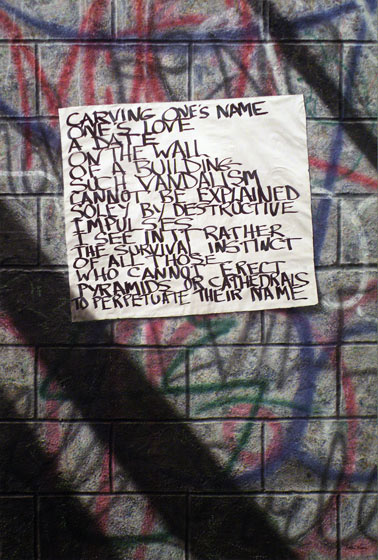 CARVING ONE'S NAME
ONE'S LOVE
A DATE
ON THE WALL
OF A BUILDING
SUCH VANDALISM
CANNOT BE EXPLAINED
SOLEY BY DESTRUCTIVE
IMPULSES
I SEE IN IT RATHER
THE SURVIVAL INSTINCT
OF ALL THOSE
WHO CANNOT ERECT
PYRAMIDS OR CATHEDRALS
TO PERPETUATE THEIR NAME